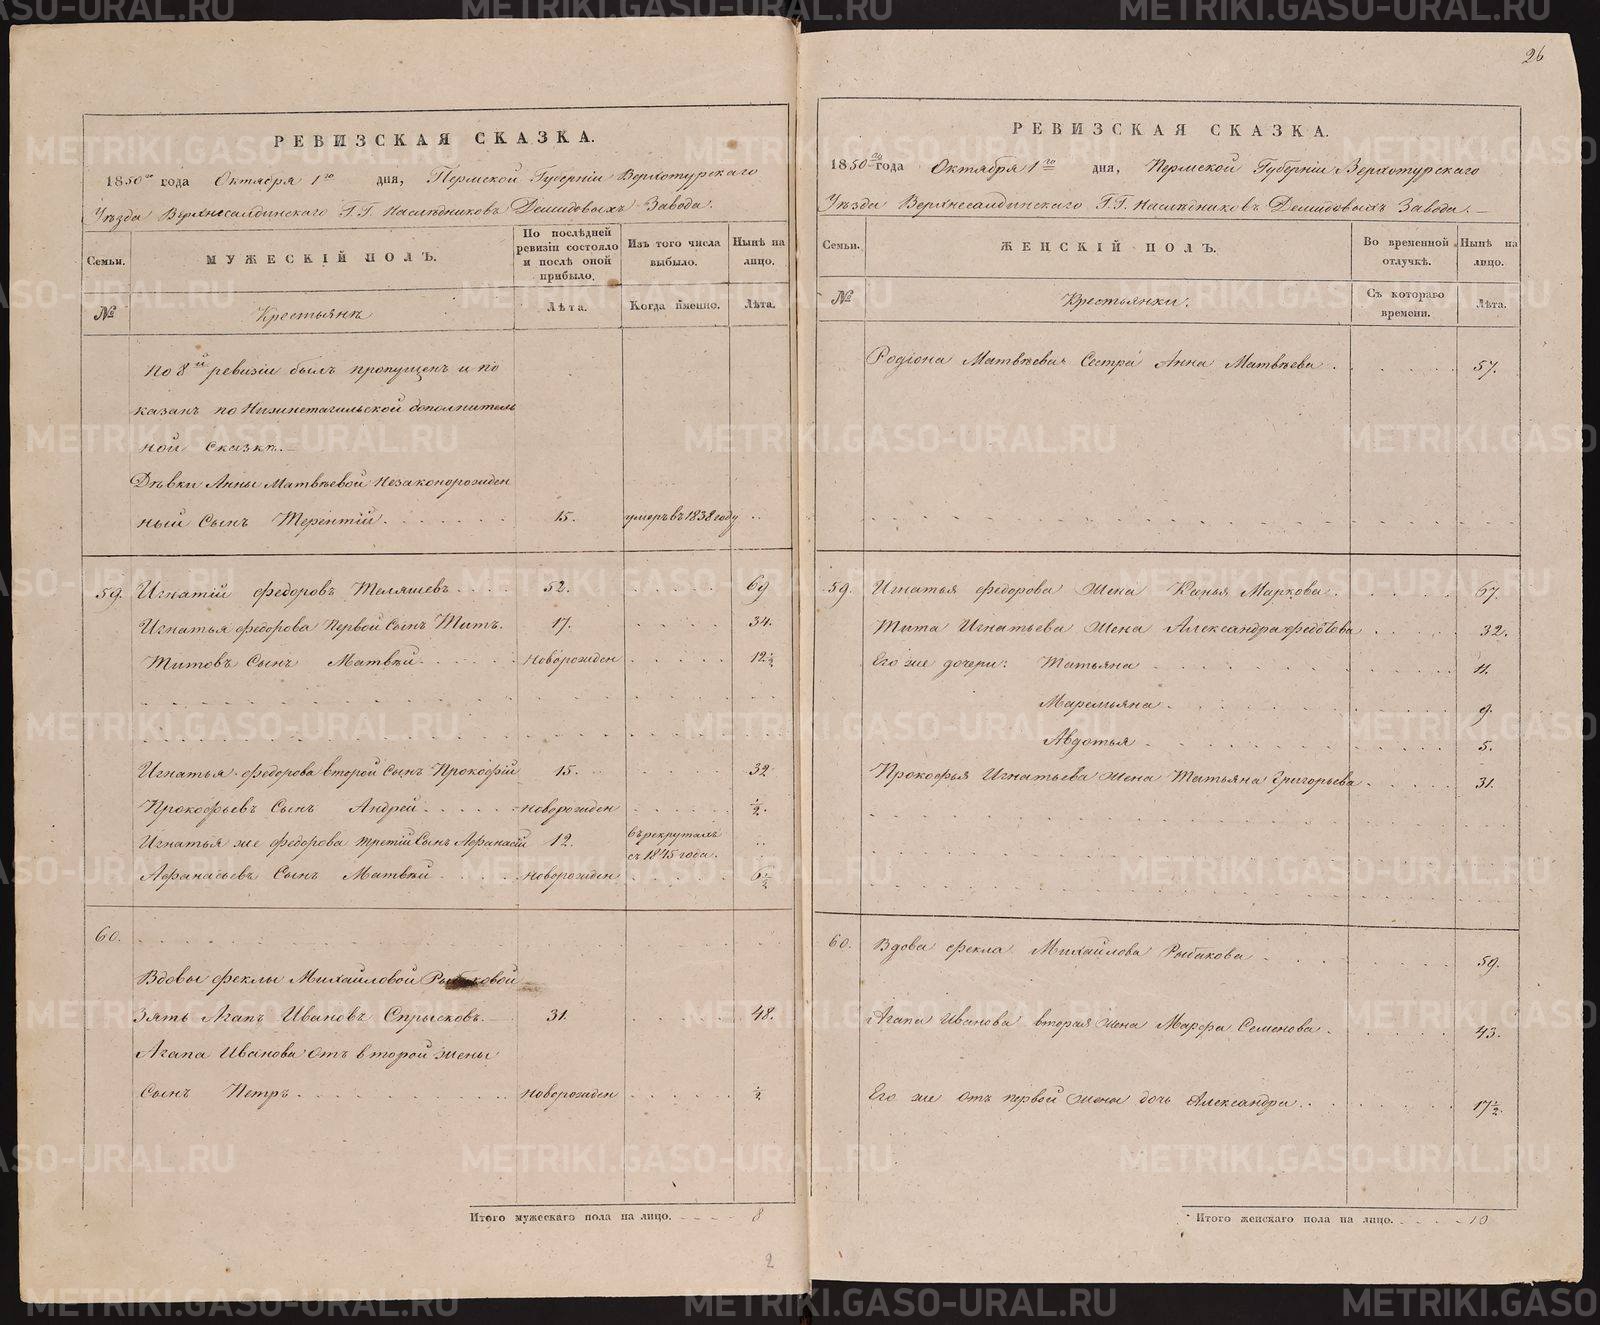 26
РЕВИЗСКАЯ СКАЗКА.
1850го года Октября 1го дня, Пермской Губерніи Верхотурскаго
Уѣзда Верхнесалдинскаго Г.Г. Наслѣдниковъ Демидовыхъ Завода.
Семьи.
МУЖЕСКІЙ ПОЛЪ.
По послѣдней ревизіи состояло и послѣ оной прибыло.
Изъ того числа выбыло.
Нынѣ на лицо.
№
Крестьянъ
Лѣта.
Когда именно.
Лѣта.
По 8й ревизіи былъ пропущенъ и по
казанъ по Нижнетагильской дополнитель
ной Сказкѣ.
Дѣвки Анны Матвѣевой Незаконорожден
ный Сынъ Терентій 15. умеръ въ 1838 году
59. Игнатій Федоровъ Теляшевъ 52. 69
Игнатья Федорова Первой Сынъ Титъ. 17. 34.
Титовъ Сынъ Матвѣй новорожден 12½
Игнатья Федорова второй Сынъ Прокофій 15. 32
Прокофьевъ Сынъ Андрей новорожден ½.
Игнатья же Федорова третій Сынъ Афанасій 12. въ рекрутахъ
съ 1845 года.
Афанасьевъ Сынъ Матвѣй новорожден 6½
60.
Вдовы Феклы Михайловой Рыбаковой
Зять Агапъ Ивановъ Спрысковъ 31. 48.
Агапа Иванова отъ второй жены
Сынъ Петръ новорожден ½
Итого мужескаго пола на лицо. 8
2
РЕВИЗСКАЯ СКАЗКА.
1850го года Октября 1го дня, Пермской Губерніи Верхотурскаго
Уѣзда Верхнесалдинскаго Г.Г. Наслѣдниковъ Демидовыхъ Завода.
Семьи.
ЖЕНСКІЙ ПОЛЪ.
Во временной отлучкѣ.
Нынѣ на лицо.
№
Крестьянки.
Съ котораго времени.
Лѣта.
Родіона Матвѣева Сестра Анна Матвѣева 57.
59. Игнатья Федорова Жена Ксенья Маркова 67.
Тита Игнатьева Жена Александра Федотова 32.
Его же дочери: Татьяна 11.
Маремьяна 9.
Авдотья 5.
Прокофья Игнатьева жена Татьяна Григорьева 31.
60. Вдова Фекла Михайлова Рыбакова 59.
Агапа Иванова вторая жена Марфа Семенова 43.
Его же отъ первой жены дочь Александра 17½.
Итого женскаго пола на лицо. 10
METRIKI.GASO-URAL.RU